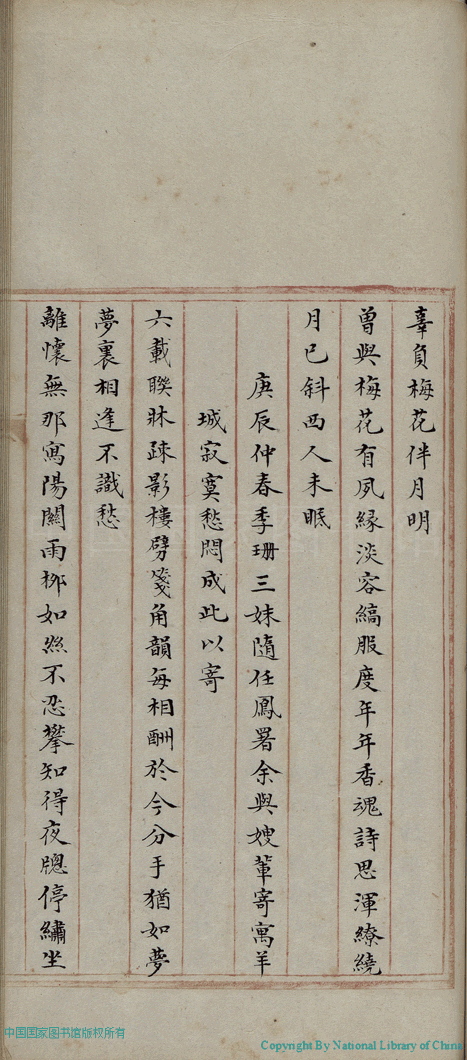 辜負梅花伴月明
曾與梅花有夙緣淡容縞服度年年香魂詩思渾繚繞
月已斜西人未眠
庚辰仲春季珊三妹隨任鳳署余與嫂輩寄寓羊
城寂寞愁悶成此以寄
六載聯牀疎影樓劈箋角韻每相酬於今分手猶如夢
夢裏相逢不識愁
離懷無那寫陽關雨栁如絲不忍攀知得夜牕停繡坐
中国国家图书馆版权所有
Copyright By National Library of China